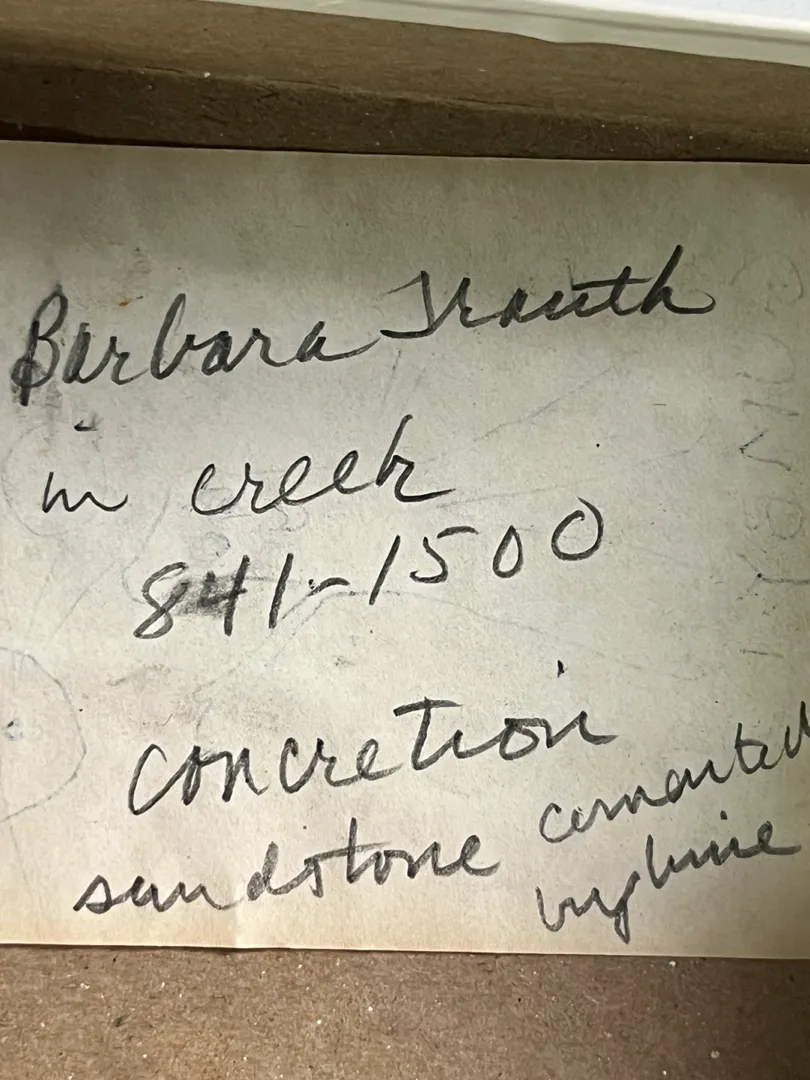 Barbara Trauth
in creek
841-1500
concretion
sandstone cemented
by lime